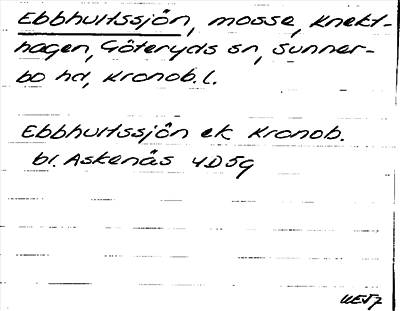 Ebbhultssjön, mosse, Knekt-
hagen, Göteryds sn, Sunner-
bo hd, Kronob. l.
Ebbhultssjön ek Kronob.
bl. Askenäs 4D5g